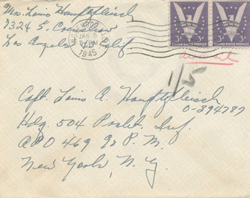 Mrs. Louis Hauptfleisch
7324 S. Crenshaw
Los Angeles Calif
1945
1/5
Capt. Louis A. Hauptfleisch
O-394287
Hdq. 504 Parcht. Inf.
APO 469 % P.M.
New York, N.Y.